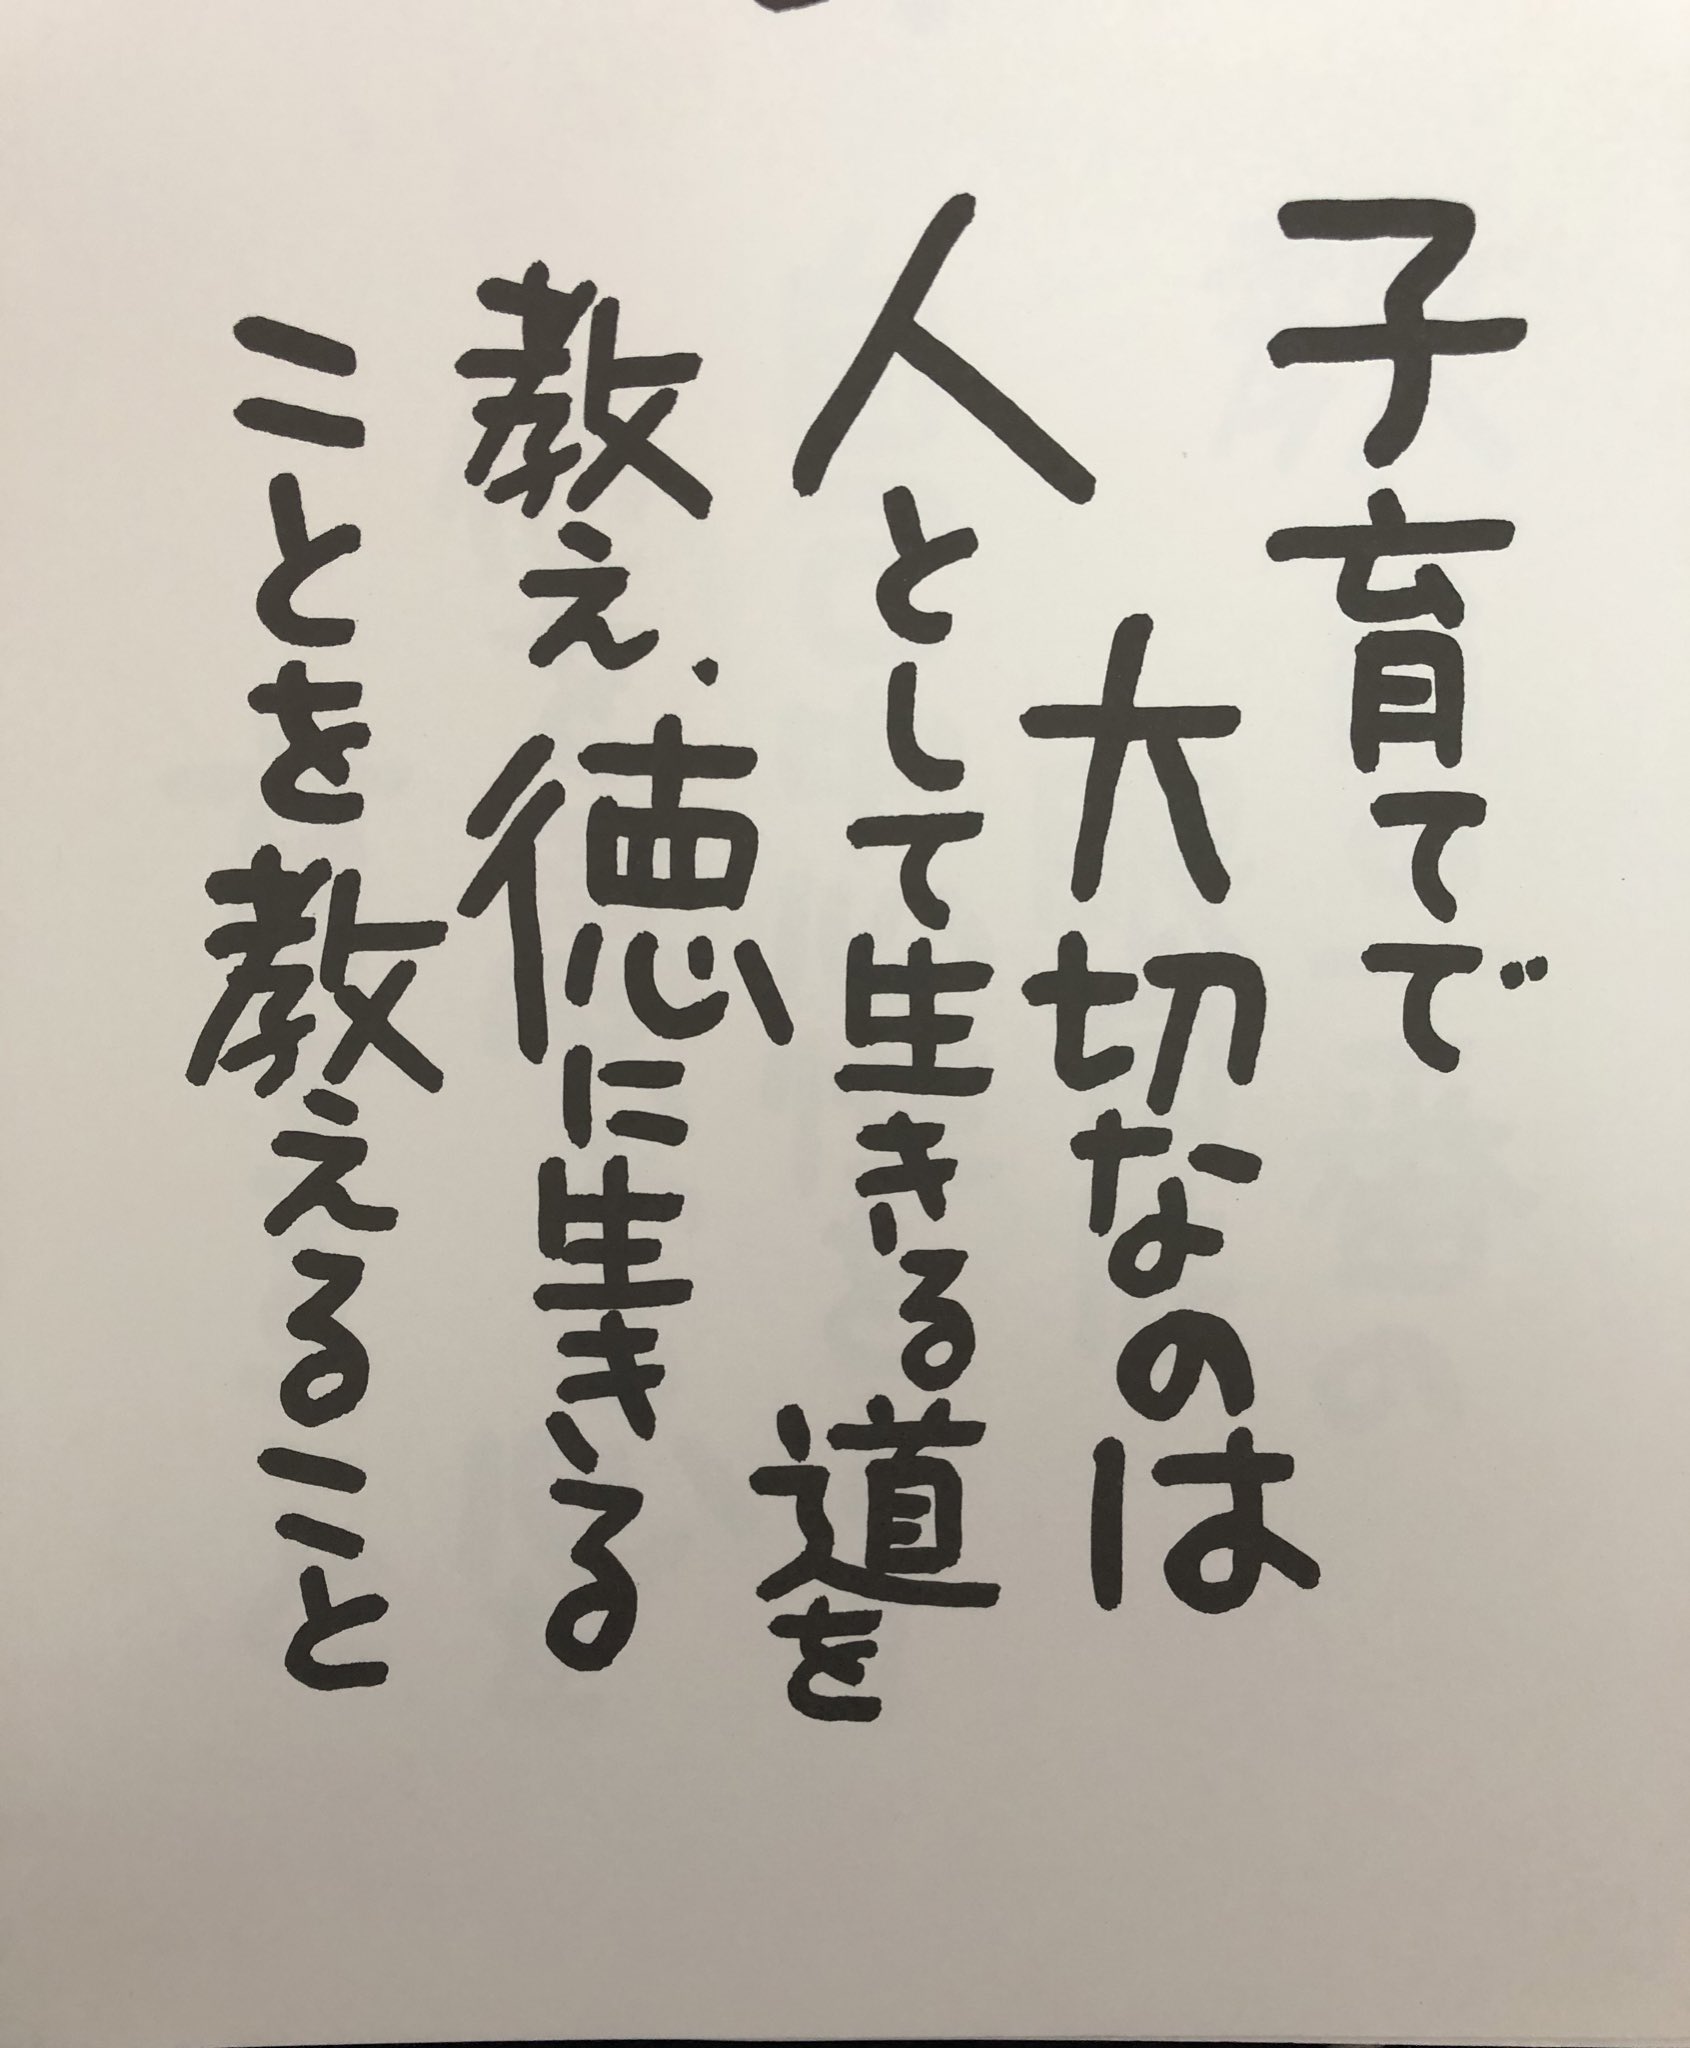 子育てで
大切なのは
人として生きる道を
教え、徳に生きる
ことを教えること